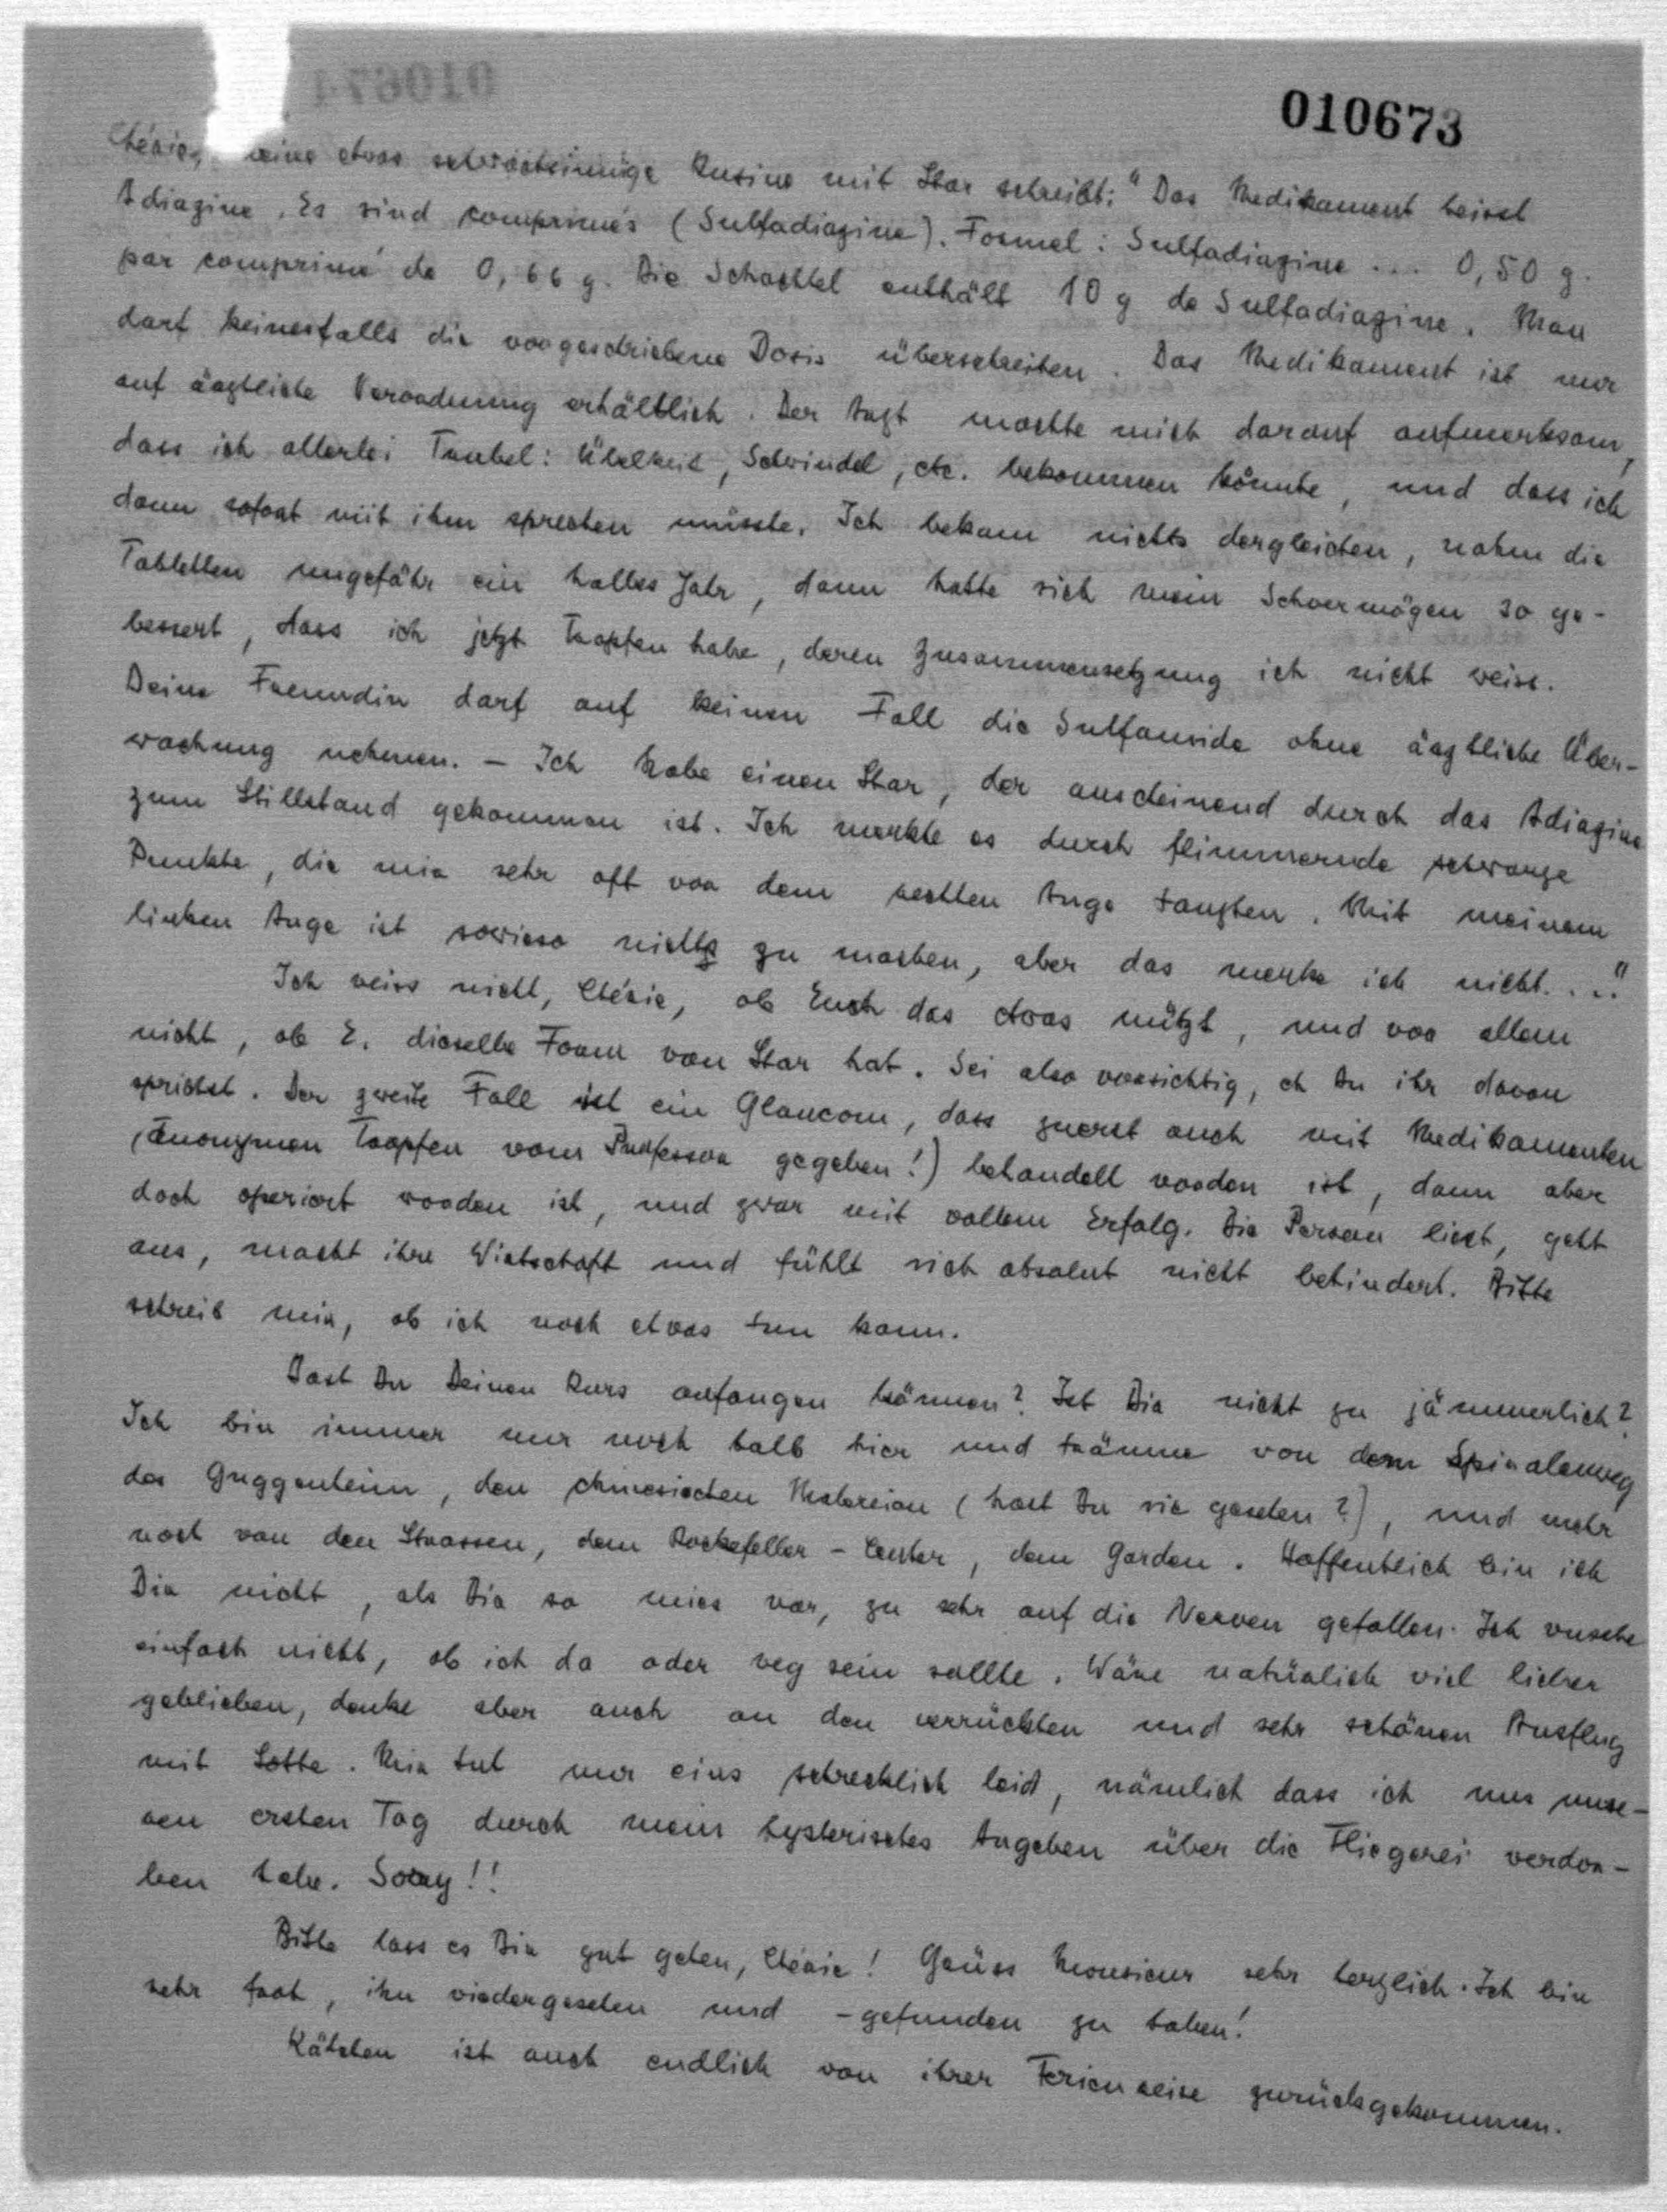 010673
Chérie, meine etwas schwachsinnige Kusine mit Star schreibt: "Das Medikament heisst
Adiazine. Es sind comprimés (Sulfadiazine). Formel: Sulfadiazine ... 0,50 g.
par comprimé de 0,66 g. Die Schachtel enthält 10 g de Sulfadiazine. Man
darf keinesfalls die vorgeschriebene Dosis überschreiten. Das Medikament ist nur
auf ärztliche Verordnung erhältlich. Der Arzt machte mich darauf aufmerksam,
dass ich allerlei Trubel: Übelkeit, Schwindel, etc. bekommen könnte, und dass ich
dann sofort mit ihm sprechen müsste. Ich bekam nichts dergleichen, nahm die
Tabletten ungefähr ein halbes Jahr, dann hatte sich mein Sehvermögen so ge-
bessert, dass ich jetzt Tropfen habe, deren Zusammensetzung ich nicht weiss.
Deine Freundin darf auf keinen Fall die Sulfamide ohne ärztliche Über-
wachung nehmen. - Ich habe einen Star, der anscheinend durch das Adiazine
zum Stillstand gekommen ist. Ich merkte es durch flimmernde schwarze
Punkte, die mir sehr oft vor dem rechten Auge tanzten. Mit meinem
linken Auge ist sowieso nichts zu machen, aber das merke ich nicht..."
Ich weiss nicht, Chérie, ob Euch das etwas nützt, und vor allem
nicht, ob E. dieselbe Form von Star hat. Sei also vorsichtig, eh Du ihr davon
sprichst. Der zweite Fall ist ein Glaucom, dass zuerst auch mit Medikamenten
(anonymen Tropfen vom Professor gegeben!) behandelt worden ist, dann aber
doch operiert worden ist, und zwar mit vollem Erfolg. Die Person liest, geht
aus, macht ihre Wirtschaft und fühlt sich absolut nicht behindert. Bitte
schreib mir, ob ich noch etwas tun kann.
Hast Du Deinen Kurs anfangen können? Ist Dir nicht zu jämmerlich?
Ich bin immer nur noch halb hier und träume von dem Spiralenweg
des Guggenheim, den chinesischen Malereien (hast Du sie gesehen?), und mehr
noch von den Strassen, dem Rockefeller-Center, dem Garden. Hoffentlich bin ich
Dir nicht, als Dir so mies war, zu sehr auf die Nerven gefallen. Ich wusste
einfach nicht, ob ich da oder weg sein sollte. Wäre natürlich viel lieber
geblieben, denke aber auch an den verrückten und sehr schönen Ausflug
mit Lotte. Mir tut nur eins schrecklich leid, nämlich dass ich uns unse-
ren ersten Tag durch mein hysterisches Angeben über die Fliegerei verdor-
ben habe. Sorry!!
Bitte lass es Dir gut gehen, Chérie! Grüss Monsieur sehr herzlich. Ich bin
sehr froh, ihn wiedergesehen und -gefunden zu haben!
Käthchen ist auch endlich von ihrer Ferienreise zurückgekommen.